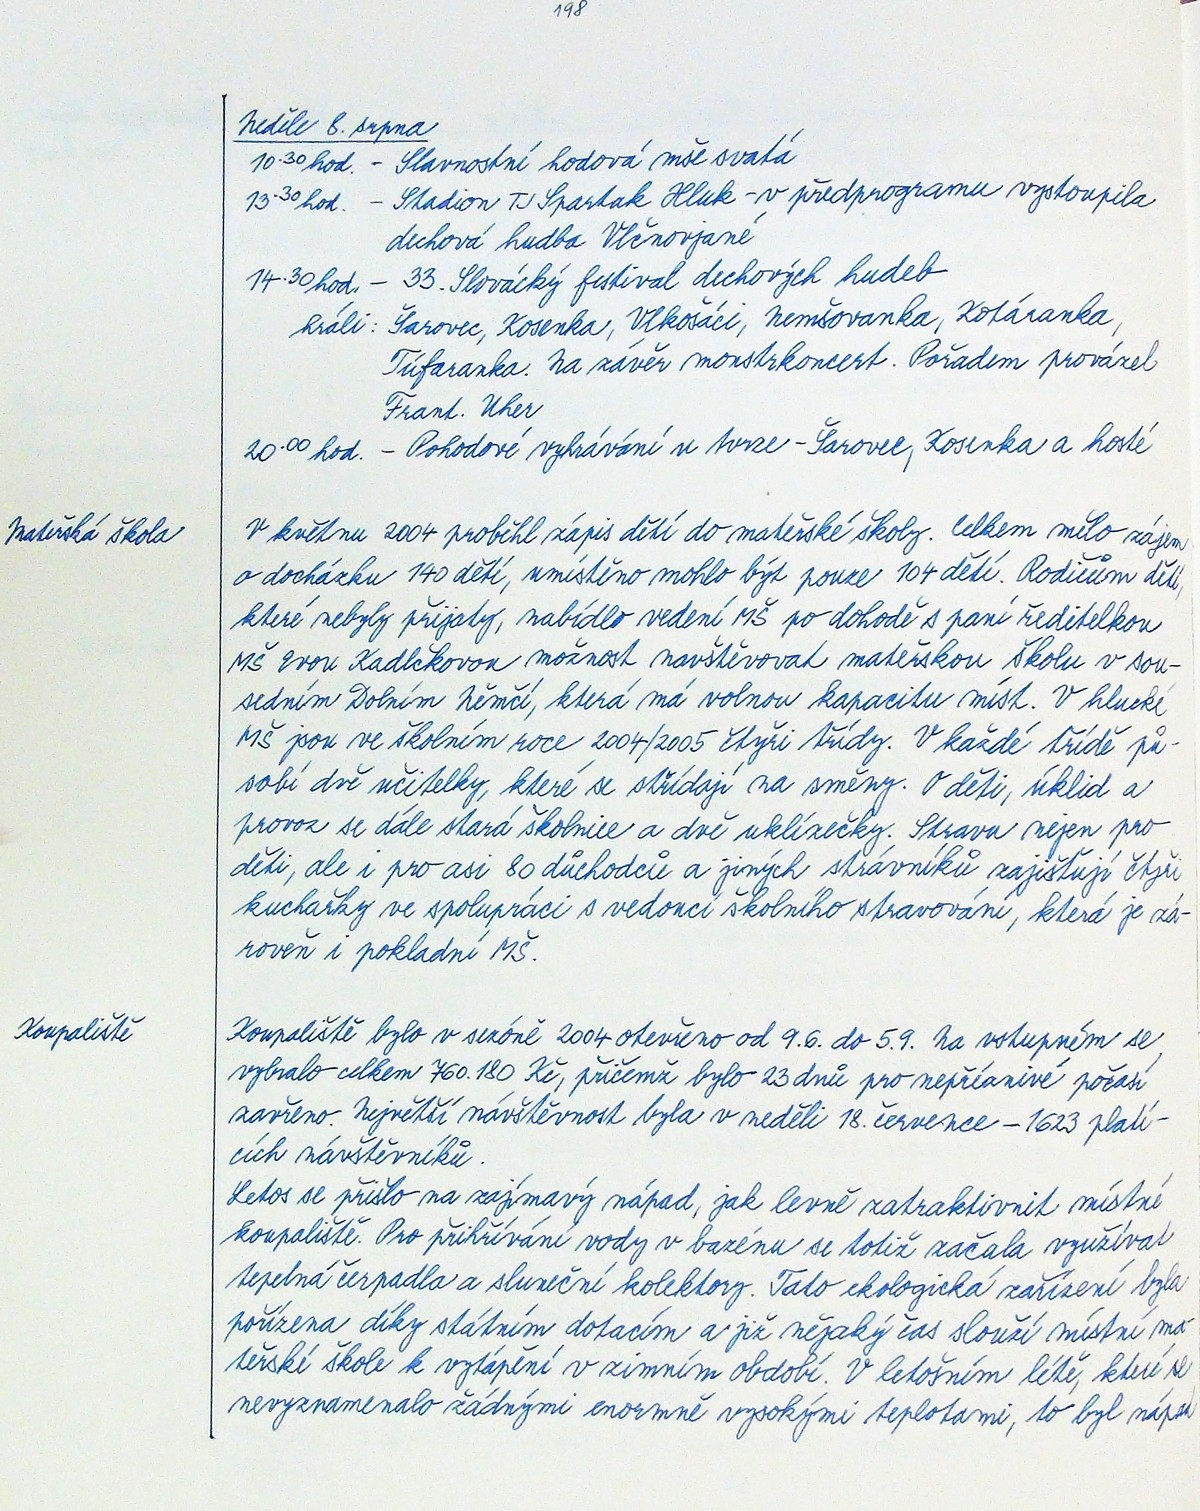 198
Neděle 8. srpna
10.30 hod. - Slavnostní hodová mše svatá
13.30 hod. - Stadion TJ Spartak Hluk - v předprogramu vystoupila
dechová hudba Vlčnovjané
14.30 hod. - 33. Slovácký festival dechových hudeb
hráli: Šarovec, Kosenka, Vlkošáci, Nemšovanka, Kotáranka,
Túfaranka. Na závěr monstrkoncert. Pořadem provázel
Frant. Uher
20.00 hod. - Pohodové vyhrávání u tvrze - Šarovec, Kosenka a hosté
Mateřská škola
V květnu 2004 proběhl zápis dětí do mateřské školy. Celkem mělo zájem
o docházku 140 dětí, umístěno mohlo být pouze 104 dětí. Rodičům dětí,
které nebyly přijaty, nabídlo vedení MŠ po dohodě s paní ředitelkou
MŠ Evou Kadlčkovou možnost navštěvovat mateřskou školu v sou-
sedním Dolním Němčí, která má volnou kapacitu míst. V hlucké
MŠ jsou ve školním roce 2004/2005 čtyři třídy. V každé třídě pů-
sobí dvě učitelky, které se střídají na směny. O děti, úklid a
provoz se dále stará školnice a dvě uklízečky. Stravu nejen pro
děti, ale i pro asi 80 důchodců a jiných strávníků zajišťují čtyři
kuchařky ve spolupráci s vedoucí školního stravování, která je zá-
roveň i pokladní MŠ.
Koupaliště
Koupaliště bylo v sezóně 2004 otevřeno od 9.6. do 5.9. Na vstupném se
vybralo celkem 760.180 Kč, přičemž bylo 23 dnů pro nepříznivé počasí
zavřeno. Největší návštěvnost byla v neděli 18. července - 1623 platí-
cích návštěvníků.
Letos se přišlo na zajímavý nápad, jak levně zatraktivnit místní
koupaliště. Pro přihřívání vody v bazénu se totiž začala využívat
tepelná čerpadla a sluneční kolektory. Tato ekologická zařízení byla
pořízena díky státním dotacím a již nějaký čas slouží místní ma-
teřské škole k vytápění v zimním období. V letošním létě, které se
nevyznamenalo žádnými enormně vysokými teplotami, to byl nápad